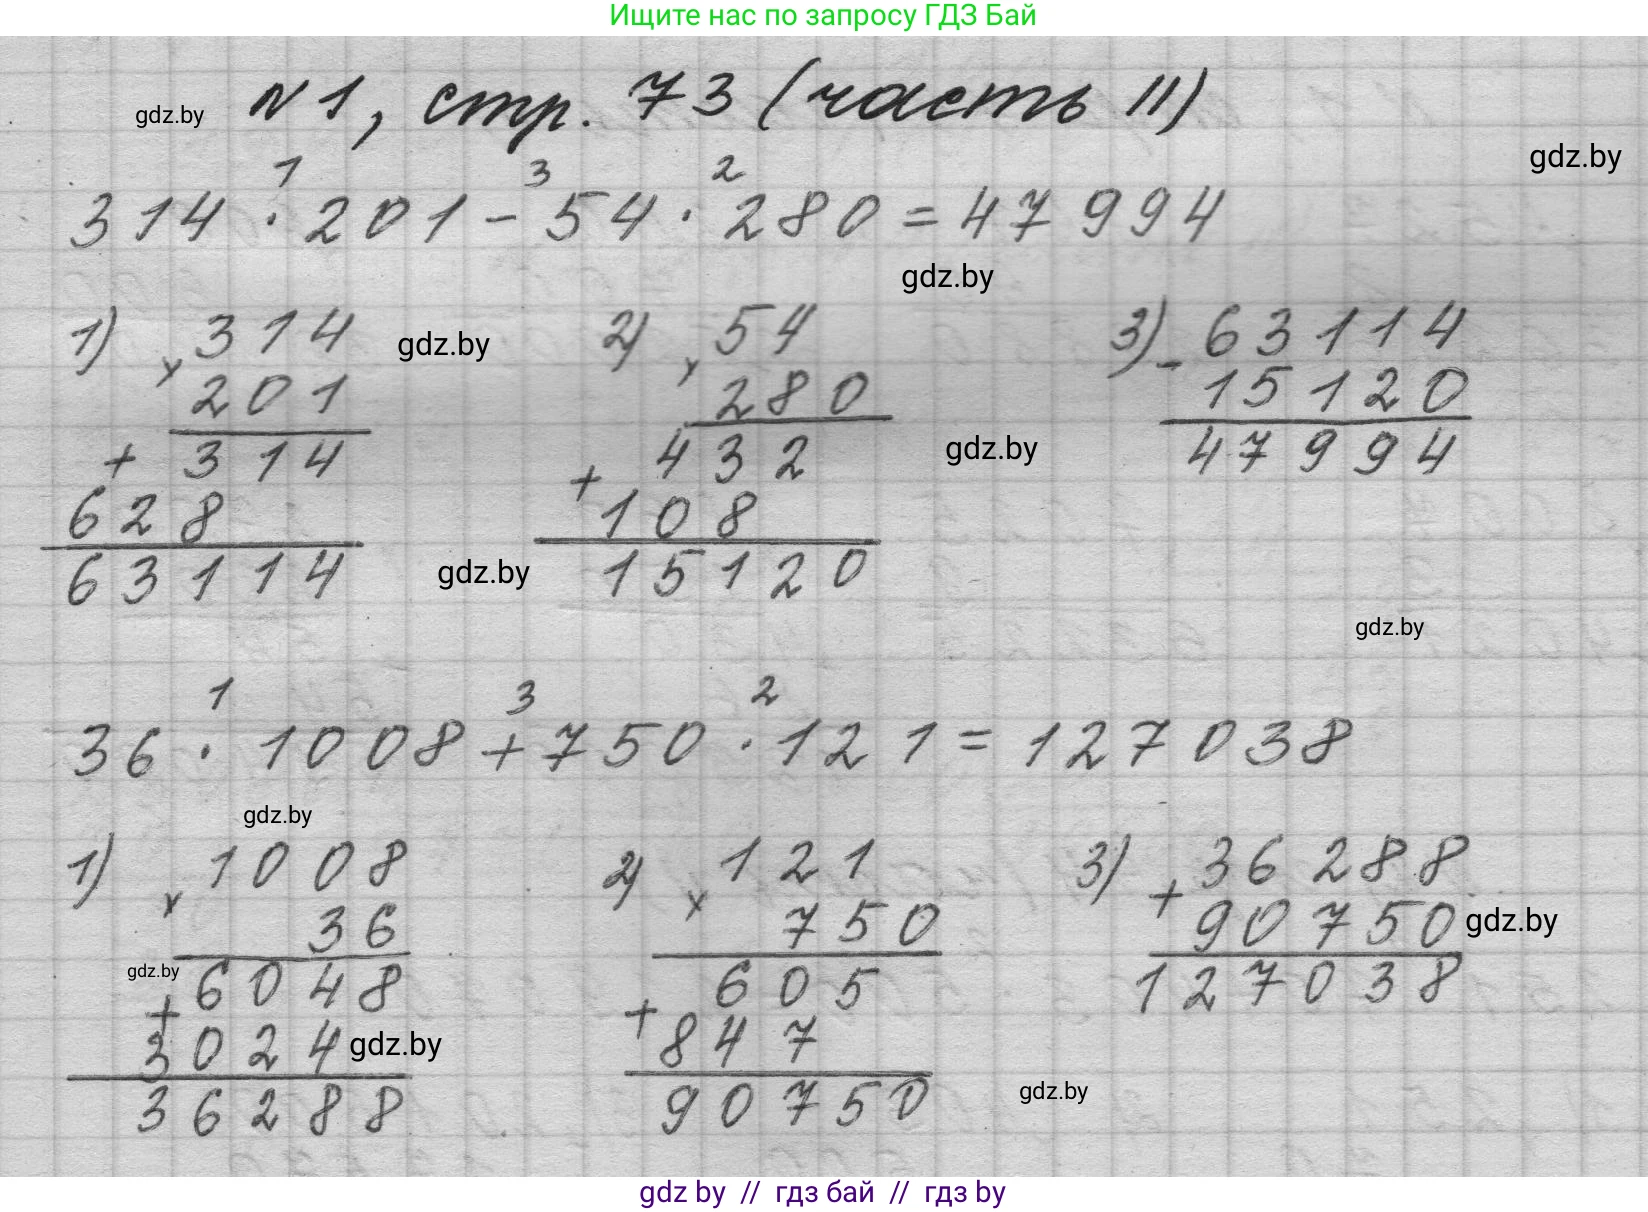 Ищите нас по запросу ГДЗ Бай
gdz.by N 1, стр. 73 (часть II)
gdz.by
1 3 2
314 · 201 - 54 · 280 = 47994
gdz.by
1) 314 gdz.by 2) 54 3) 63114
× × -
201 280 15120
+ 314 432 gdz.by 47994
+
628 108
63114 gdz.by 15120
gdz.by
1 3 2
36 · 1008 + 750 · 121 = 127038
gdz.by
1) 1008 2) 121 3) 36288
× × +
36 750 90750 gdz.by
gdz.by 6048 605 127038
+ +
3024 gdz.by 847
gdz.by
36288 90750
gdz by // гдз бай // гдз by